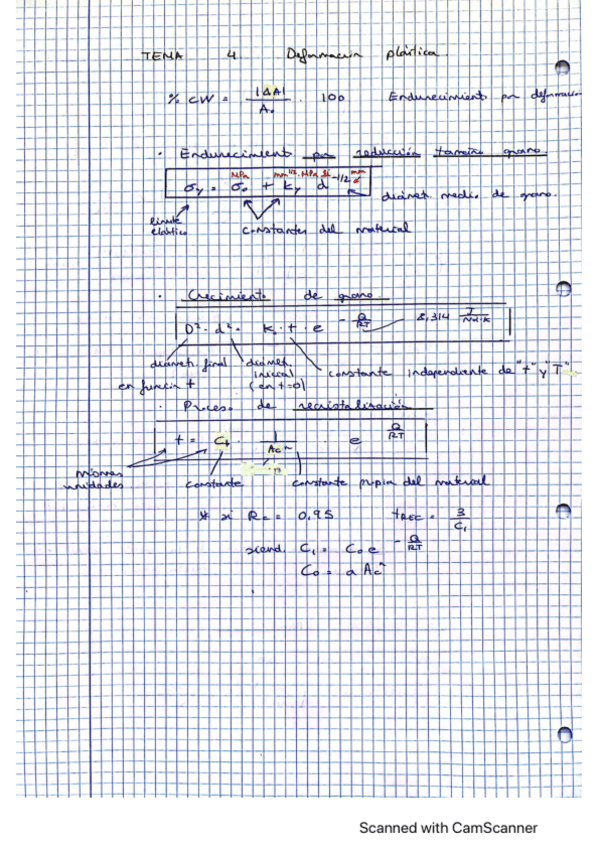 TEMA 4 Deformación plástica
% CW = |ΔA| / A₀ · 100 Endurecimiento por deformación
· Endurecimiento por reducción tamaño grano
MPa mm^1/2 · MPa mm
σy = σ₀ + ky d^-1/2
diámet. medio de grano.
límite elástico
constantes del material
· Crecimiento de grano
D² - d² = K · t · e^-Q/RT 8,314 J/mol·K
diámet. final en función t
diámet. inicial (en t=0)
constante independiente de "t" y "T"
· Proceso de recristalización
t = C₁ · 1/Ac^n · e^Q/RT
mismas unidades
constante
constante propia del material
* si Rc = 0,95 tREC = 3/C₁
siend. C₁ = C₀ e^-Q/RT
C₀ = a Ac^n
Scanned with CamScanner